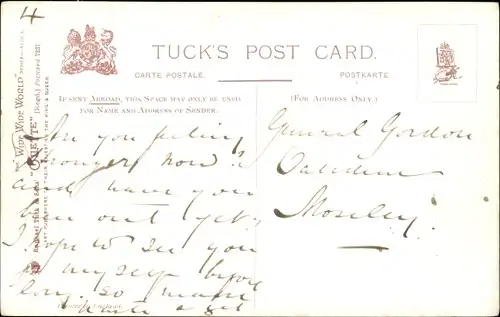 4
TUCK'S POST CARD.
CARTE POSTALE.
POSTKARTE
IF SENT ABROAD, THIS SPACE MAY ONLY BE USED
FOR NAME AND ADDRESS OF SENDER.
(FOR ADDRESS ONLY.)
THE "WIDE WIDE WORLD"
"OILETTE" (Regd.)
RAPHAEL TUCK & SONS'
you feeling
now?
and have you
been out yet,
I hope to see you
myself before
long. so
haste & get
General Gordon
Moseley